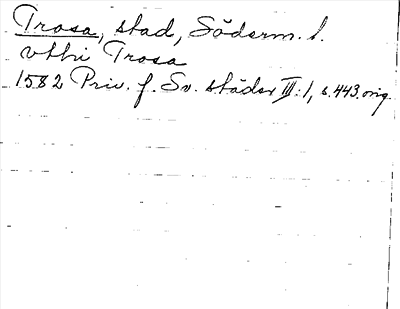 Trosa, stad, Söderm. l.
vthi Trosa
1582 Priv. f. Sv. städer III:1, s.443. orig.